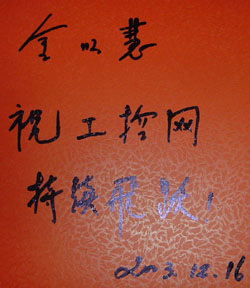 金以慧
祝工控网
持续飞跃！
2003.12.16